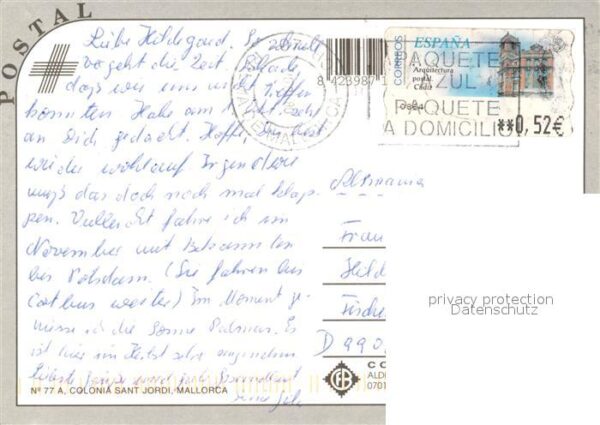 POSTAL
Liebe Hildegard. So schnell
vergeht die Zeit. Schade
dass wir uns nicht treffen
konnten. Habe am 1. Okt.
an Dich gedacht. Hoffe, Du bist
wieder wohlauf. Irgendwie
muß das doch noch mal klap-
pen. Vielleicht fahre ich im
November mit Bekannten
bis Potsdam. (Sie fahren bis
Cottbus weiter) Im Moment ge-
niesse ich die Sonne Palmas. Es
ist hier im Herbst sehr angenehm
Liebste Grüsse
Deine
Nº 77 A, COLONIA SANT JORDI, MALLORCA
8 423987 1
CORREOS
ESPAÑA
Arquitectura
postal
Cádiz
**0,52€
PAQUETE
AZUL
PAQUETE
A DOMICILIO
Alemania
Frau
Hild
Fischer
D 990
CO
ALD
0701
privacy protection
Datenschutz